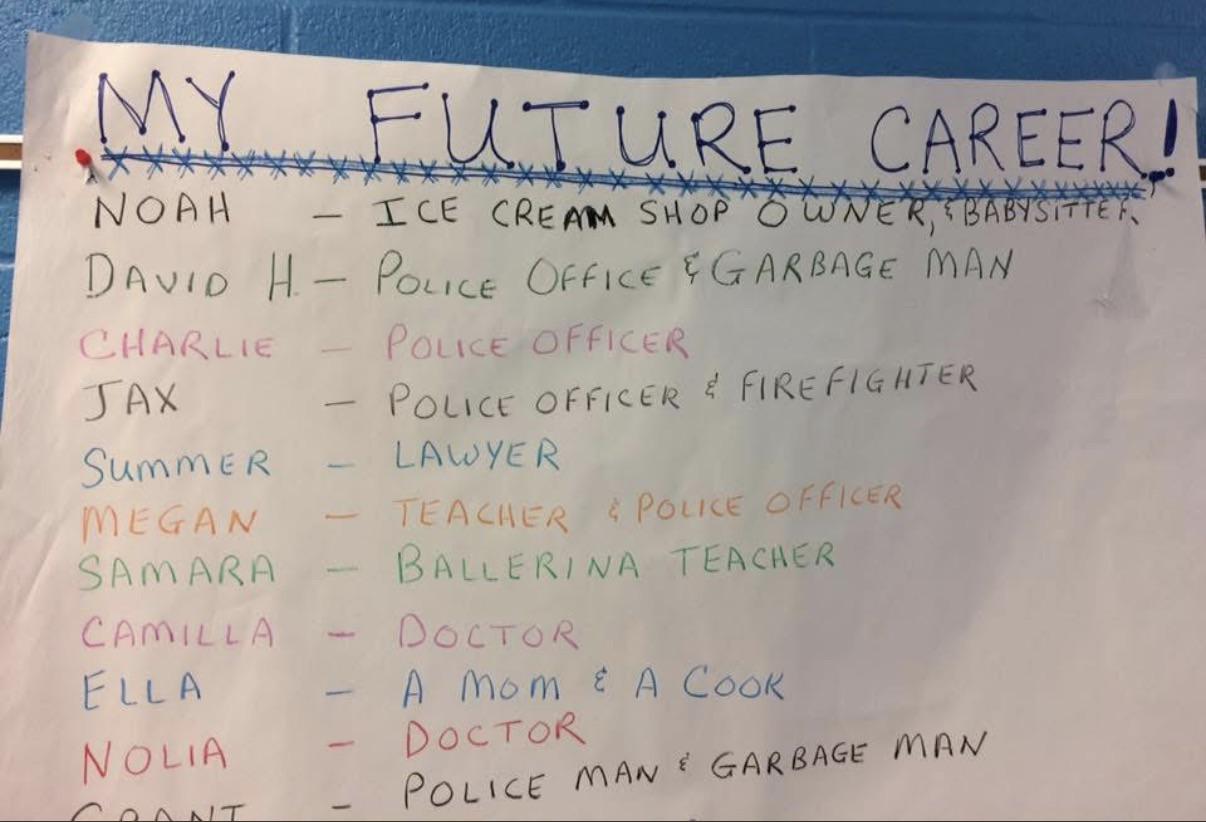 MY FUTURE CAREER!
NOAH - ICE CREAM SHOP OWNER, & BABYSITTER
DAVID H. - POLICE OFFICE & GARBAGE MAN
CHARLIE - POLICE OFFICER
JAX - POLICE OFFICER & FIREFIGHTER
SUMMER - LAWYER
MEGAN - TEACHER & POLICE OFFICER
SAMARA - BALLERINA TEACHER
CAMILLA - DOCTOR
ELLA - A MOM & A COOK
NOLIA - DOCTOR
GRANT - POLICE MAN & GARBAGE MAN